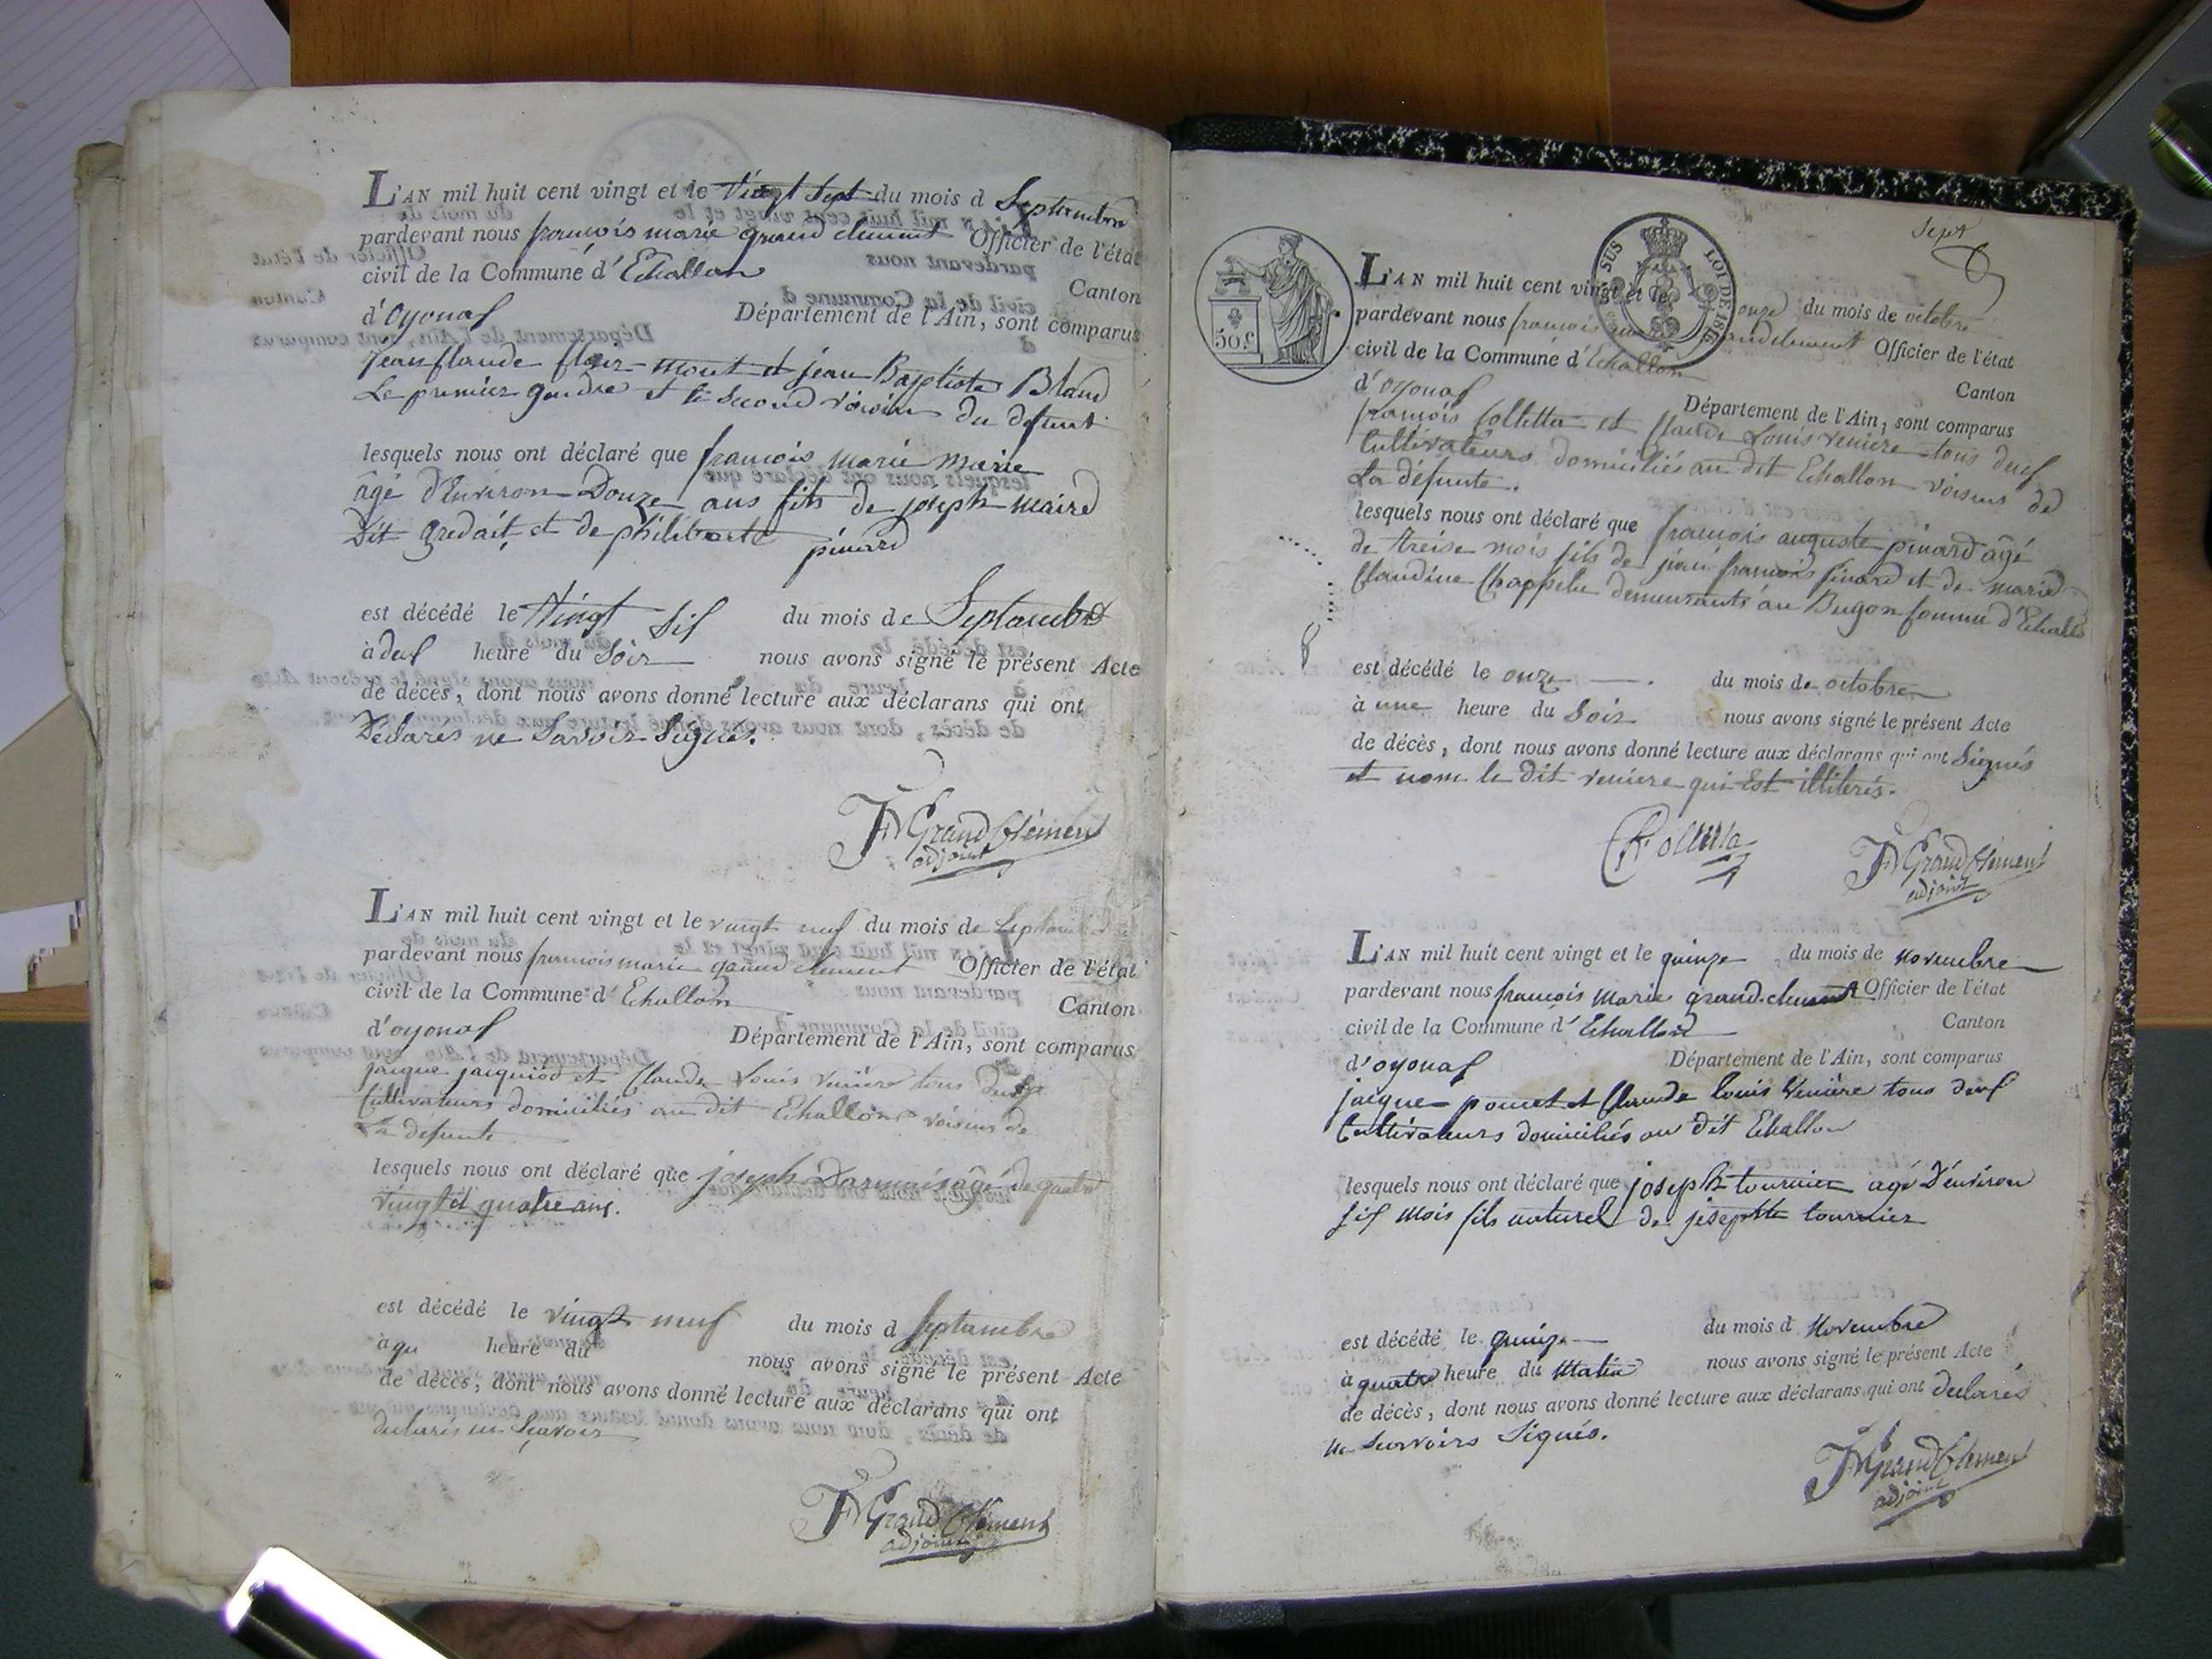 L'AN mil huit cent vingt et le vingt sept du mois d Septembre
pardevant nous francois marie grand clement Officier de l'état
civil de la Commune d'Echallon
Canton
d'Oyonax Département de l'Ain, sont comparus
jean Claude mont et jean Baptiste Bland
Le premier gendre et le second voisin du defunt
lesquels nous ont déclaré que francois marie maire
âgé d'Environ Douze ans fils de joseph maire
Dit gredait et de philiberte pinard
est décédé le Vingt Six du mois de Septembre
à deux heure du Soir nous avons signé le présent Acte
de décès, dont nous avons donné lecture aux déclarans qui ont
Déclarés ne Savoir Signés.
F M Grand Clément
adjoint
L'AN mil huit cent vingt et le vingt neuf du mois de Septembre
pardevant nous francois marie grand clement Officier de l'état
civil de la Commune d'Echallon
Canton
d'oyonax Département de l'Ain, sont comparus
jacque jacquiod et Claude Louis veniere tous deux
Cultivateurs domiciliés au dit Echallon voisins de
La defunte
lesquels nous ont déclaré que joseph Darmais âgé de quatre
vingt et quatre ans.
est décédé le vingt neuf du mois d Septembre
à qu heure du nous avons signé le présent Acte
de décès, dont nous avons donné lecture aux déclarans qui ont
declarés ne Sçavoir
F M Grand Clément
adjoint
Sept
50.c
SUS LOI DE 1816
L'AN mil huit cent vingt et le onze du mois de octobre
pardevant nous francois marie grandclement Officier de l'état
civil de la Commune d'Echallon
Canton
d'oyonax Département de l'Ain, sont comparus
françois Colletta et Claude Louis veniere tous deux
Cultivateurs domiciliés au dit Echallon voisins de
La défunte.
lesquels nous ont déclaré que francois auguste pinard âgé
de treise mois fils de jean francois pinard et de marie
Claudine Chappelu demeurants au Bugon Commu d'Echallo
est décédé le onze du mois de octobre
à une heure du Soir nous avons signé le présent Acte
de décès, dont nous avons donné lecture aux déclarans qui ont Signés
et nom le dit veniere qui Est illiterés.
F M Grand Clément
adjoint
L'AN mil huit cent vingt et le quinze du mois de Novembre
pardevant nous francois Marie grand.clement Officier de l'état
civil de la Commune d'Echallon
Canton
d'oyonax Département de l'Ain, sont comparus
jacque poncet et Claude louis Veniere tous deux
Cultivateurs domiciliés au dit Echallon
lesquels nous ont déclaré que joseph tournier agé D'environ
Six Mois fils naturel de josephte tournier
est décédé le quinze du mois d Novembre
à quatre heure du Matin nous avons signé le présent Acte
de décès, dont nous avons donné lecture aux déclarans qui ont declarés
ne Savoirs Signés.
F M Grand Clément
adjoint